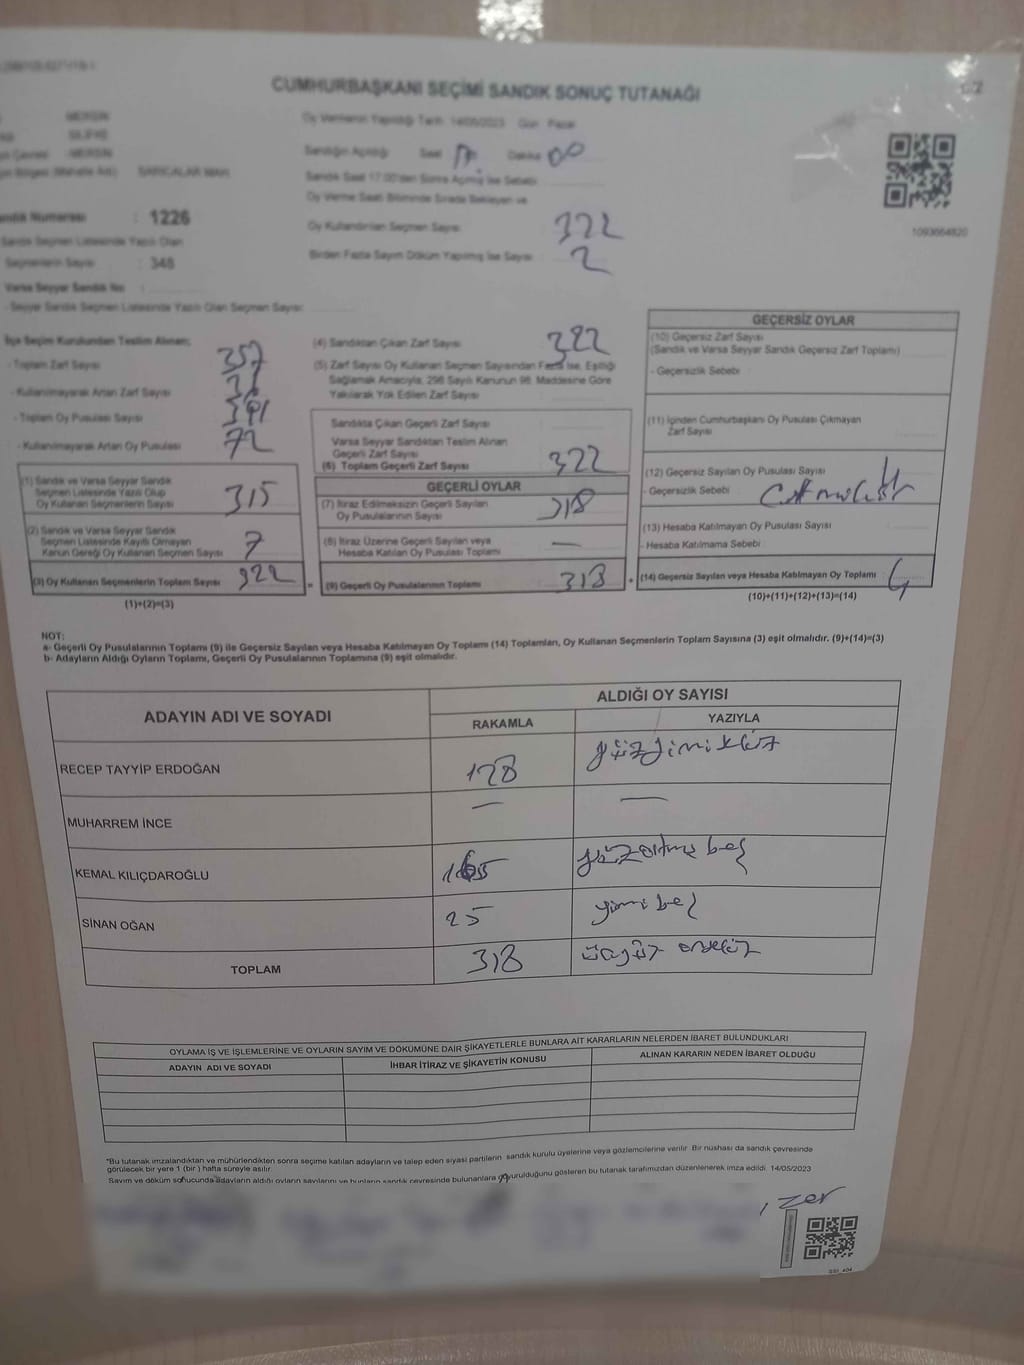 CUMHURBAŞKANI SEÇİMİ SANDIK SONUÇ TUTANAĞI
Oy Vermenin Yapıldığı Tarih 14/05/2023 Gün Pazar
MERSİN
SİLİFKE
MERSİN
SARICALAR MAH.
Sandığın Açıldığı Saat 17 Dakika 00
Sandık Saat 17:00'den Sonra Açılmış İse Sebebi
Oy Verme Saati Bitiminde Sırada Bekleyen ve
Oy Kullandırılan Seçmen Sayısı 322
Birden Fazla Sayım Döküm Yapılmış İse Sayısı 2
1093664820
Sandık Numarası : 1226
Sandık Seçmen Listesinde Yazılı Olan
Seçmenlerin Sayısı : 348
Varsa Seyyar Sandık No :
- Seyyar Sandık Seçmen Listesinde Yazılı Olan Seçmen Sayısı:
İlçe Seçim Kurulundan Teslim Alınan;
- Toplam Zarf Sayısı 357
- Kullanılmayarak Artan Zarf Sayısı
- Toplam Oy Pusulası Sayısı
- Kullanılmayarak Artan Oy Pusulası 72
(1) Sandık ve Varsa Seyyar Sandık
Seçmen Listesinde Yazılı Olup
Oy Kullanan Seçmenlerin Sayısı 315
(2) Sandık ve Varsa Seyyar Sandık
Seçmen Listesinde Kayıtlı Olmayan
Kanun Gereği Oy Kullanan Seçmen Sayısı 7
(3) Oy Kullanan Seçmenlerin Toplam Sayısı 322
(1)+(2)=(3)
(4) Sandıktan Çıkan Zarf Sayısı 322
(5) Zarf Sayısı Oy Kullanan Seçmen Sayısından Fazla İse, Eşitliği
Sağlamak Amacıyla, 298 Sayılı Kanunun 98. Maddesine Göre
Yakılarak Yok Edilen Zarf Sayısı
Sandıkta Çıkan Geçerli Zarf Sayısı
Varsa Seyyar Sandıktan Teslim Alınan
Geçerli Zarf Sayısı
(6) Toplam Geçerli Zarf Sayısı 322
GEÇERLİ OYLAR
(7) İtiraz Edilmeksizin Geçerli Sayılan
Oy Pusulalarının Sayısı 318
(8) İtiraz Üzerine Geçerli Sayılan veya
Hesaba Katılan Oy Pusulası Toplamı —
= (9) Geçerli Oy Pusulalarının Toplamı 318
GEÇERSİZ OYLAR
(10) Geçersiz Zarf Sayısı
(Sandık ve Varsa Seyyar Sandık Geçersiz Zarf Toplamı)
- Geçersizlik Sebebi
(11) İçinden Cumhurbaşkanı Oy Pusulası Çıkmayan
Zarf Sayısı
(12) Geçersiz Sayılan Oy Pusulası Sayısı
- Geçersizlik Sebebi
(13) Hesaba Katılmayan Oy Pusulası Sayısı
- Hesaba Katılmama Sebebi
+ (14) Geçersiz Sayılan veya Hesaba Katılmayan Oy Toplamı 4
(10)+(11)+(12)+(13)=(14)
NOT:
a- Geçerli Oy Pusulalarının Toplamı (9) ile Geçersiz Sayılan veya Hesaba Katılmayan Oy Toplamı (14) Toplamları, Oy Kullanan Seçmenlerin Toplam Sayısına (3) eşit olmalıdır. (9)+(14)=(3)
b- Adayların Aldığı Oyların Toplamı, Geçerli Oy Pusulalarının Toplamına (9) eşit olmalıdır.
ADAYIN ADI VE SOYADI
ALDIĞI OY SAYISI
RAKAMLA YAZIYLA
RECEP TAYYİP ERDOĞAN 128 yüzyirmisekiz
MUHARREM İNCE — —
KEMAL KILIÇDAROĞLU 165 yüzaltmış beş
SİNAN OĞAN 25 yirmi beş
TOPLAM 318 üçyüz onsekiz
OYLAMA İŞ VE İŞLEMLERİNE VE OYLARIN SAYIM VE DÖKÜMÜNE DAİR ŞİKAYETLERLE BUNLARA AİT KARARLARIN NELERDEN İBARET BULUNDUKLARI
ADAYIN ADI VE SOYADI İHBAR İTİRAZ VE ŞİKAYETİN KONUSU ALINAN KARARIN NEDEN İBARET OLDUĞU
*Bu tutanak imzalandıktan ve mühürlendikten sonra seçime katılan adayların ve talep eden siyasi partilerin sandık kurulu üyelerine veya gözlemcilerine verilir. Bir nüshası da sandık çevresinde
görülecek bir yere 1 (bir) hafta süreyle asılır.
Sayım ve döküm sonucunda adayların aldığı oyların sayılarını ve bunların sandık çevresinde bulunanlara duyurulduğunu gösteren bu tutanak tarafımızdan düzenlenerek imza edildi. 14/05/2023